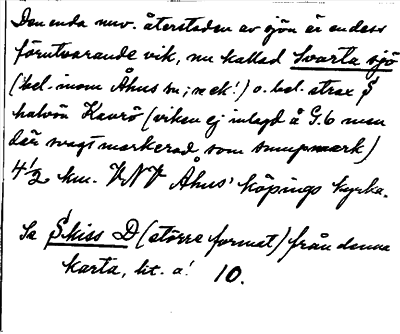 Den enda nuv. återstoden av sjön är en dess
förutvarande vik, nu kallad Svarta sjö
(bel. inom Åhus sn; n ek!) o. bel. strax S
halvön Kavrö (viken ej inlagd å G.6 men
där svagt markerad som sumpmark)
4 1/2 km. VNV Åhus' köpings kyrka.
Se Skiss D (större format) från denna
karta, lit. a! 10.